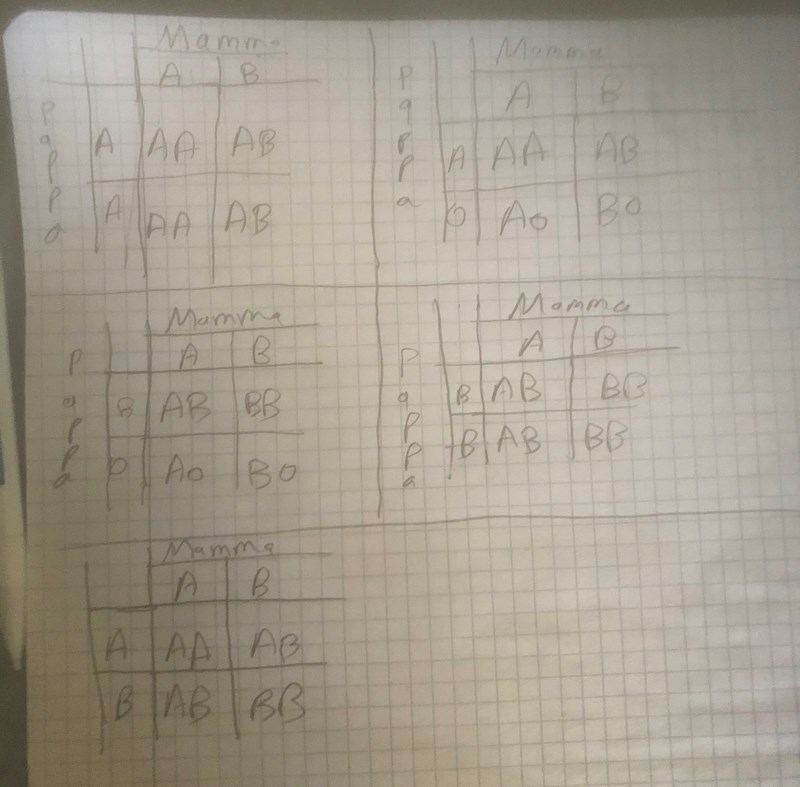 Mamma
A B
Pappa
A AA AB
A AA AB
Mamma
A B
Pappa
A AA AB
O Ao Bo
Mamma
A B
Pappa
B AB BB
O Ao Bo
Mamma
A B
Pappa
B AB BB
B AB BB
Mamma
A B
A AA AB
B AB BB